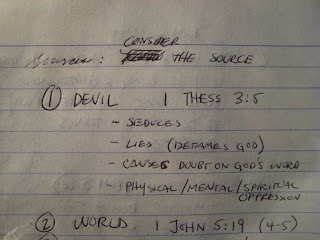 CONSIDER
: THE SOURCE
① DEVIL 1 THESS 3:5
- SEDUCES
- LIES (DEFAMES GOD)
- CAUSES DOUBT ON GOD'S WORD
- PHYSICAL/MENTAL/SPIRITUAL
OPPRESSION
② WORLD 1 JOHN 5:19 (4-5)